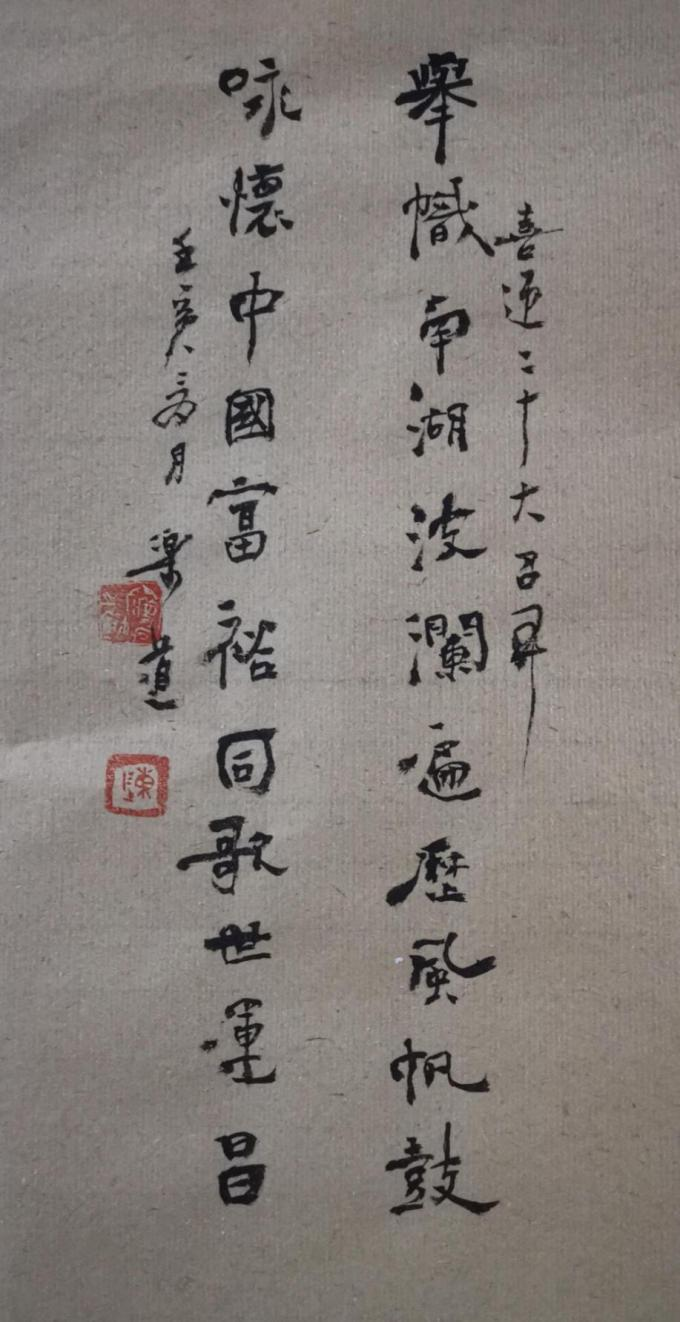 喜迎二十大召開
舉幟南湖波瀾遍歷風帆鼓
咏懷中國富裕同歌世運昌
壬寅 月 樂道
陳